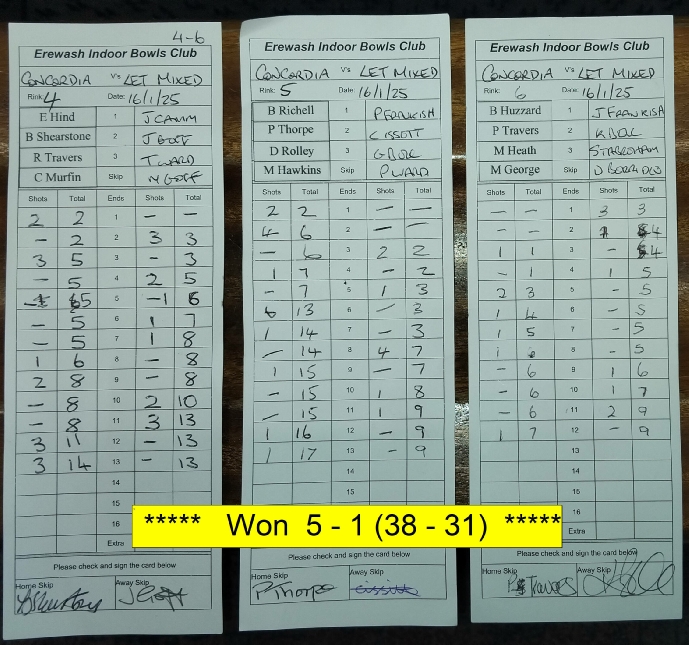 4-6
Erewash Indoor Bowls Club
CONCORDIA V's LET MIXED
Rink: 4 Date: 16/1/25
E Hind 1 J CAMM
B Shearstone 2 J GOFF
R Travers 3 T WARD
C Murfin Skip M GOFF
Shots Total Ends Shots Total
2 2 1 — —
— 2 2 3 3
3 5 3 — 3
— 5 4 2 5
5 5 1 6
— 5 6 1 7
— 5 7 1 8
1 6 8 — 8
2 8 9 — 8
— 8 10 2 10
— 8 11 3 13
3 11 12 — 13
3 14 13 — 13
14
15
16
Extra
Please check and sign the card below
Home Skip Away Skip
J Goff
Erewash Indoor Bowls Club
CONCORDIA V's LET MIXED
Rink: 5 Date: 16/1/25
B Richell 1 P FRNKISH
P Thorpe 2 C ISSOTT
D Rolley 3 G BOL
M Hawkins Skip P WARD
Shots Total Ends Shots Total
2 2 1 — —
4 6 2 — —
— 6 3 2 2
1 7 4 — 2
— 7 5 1 3
6 13 6 — 3
1 14 7 — 3
— 14 8 4 7
1 15 9 — 7
— 15 10 1 8
— 15 11 1 9
1 16 12 — 9
1 17 13 — 9
14
15
Please check and sign the card below
Home Skip Away Skip
P Thorpe
Erewash Indoor Bowls Club
CONCORDIA V's LET MIXED
Rink: 6 Date: 16/1/25
B Huzzard 1 J FRANKISH
P Travers 2 K BOL
M Heath 3
M George Skip
Shots Total Ends Shots Total
— — 1 3 3
— — 2 1 4
1 1 3 — 4
— 1 4 1 5
2 3 5 — 5
1 4 6 — 5
1 5 7 — 5
1 6 8 — 5
— 6 9 1 6
— 6 10 1 7
— 6 11 2 9
1 7 12 — 9
13
14
15
16
Extra
Please check and sign the card below
Home Skip Away Skip
P Travers
***** Won 5 - 1 (38 - 31) *****